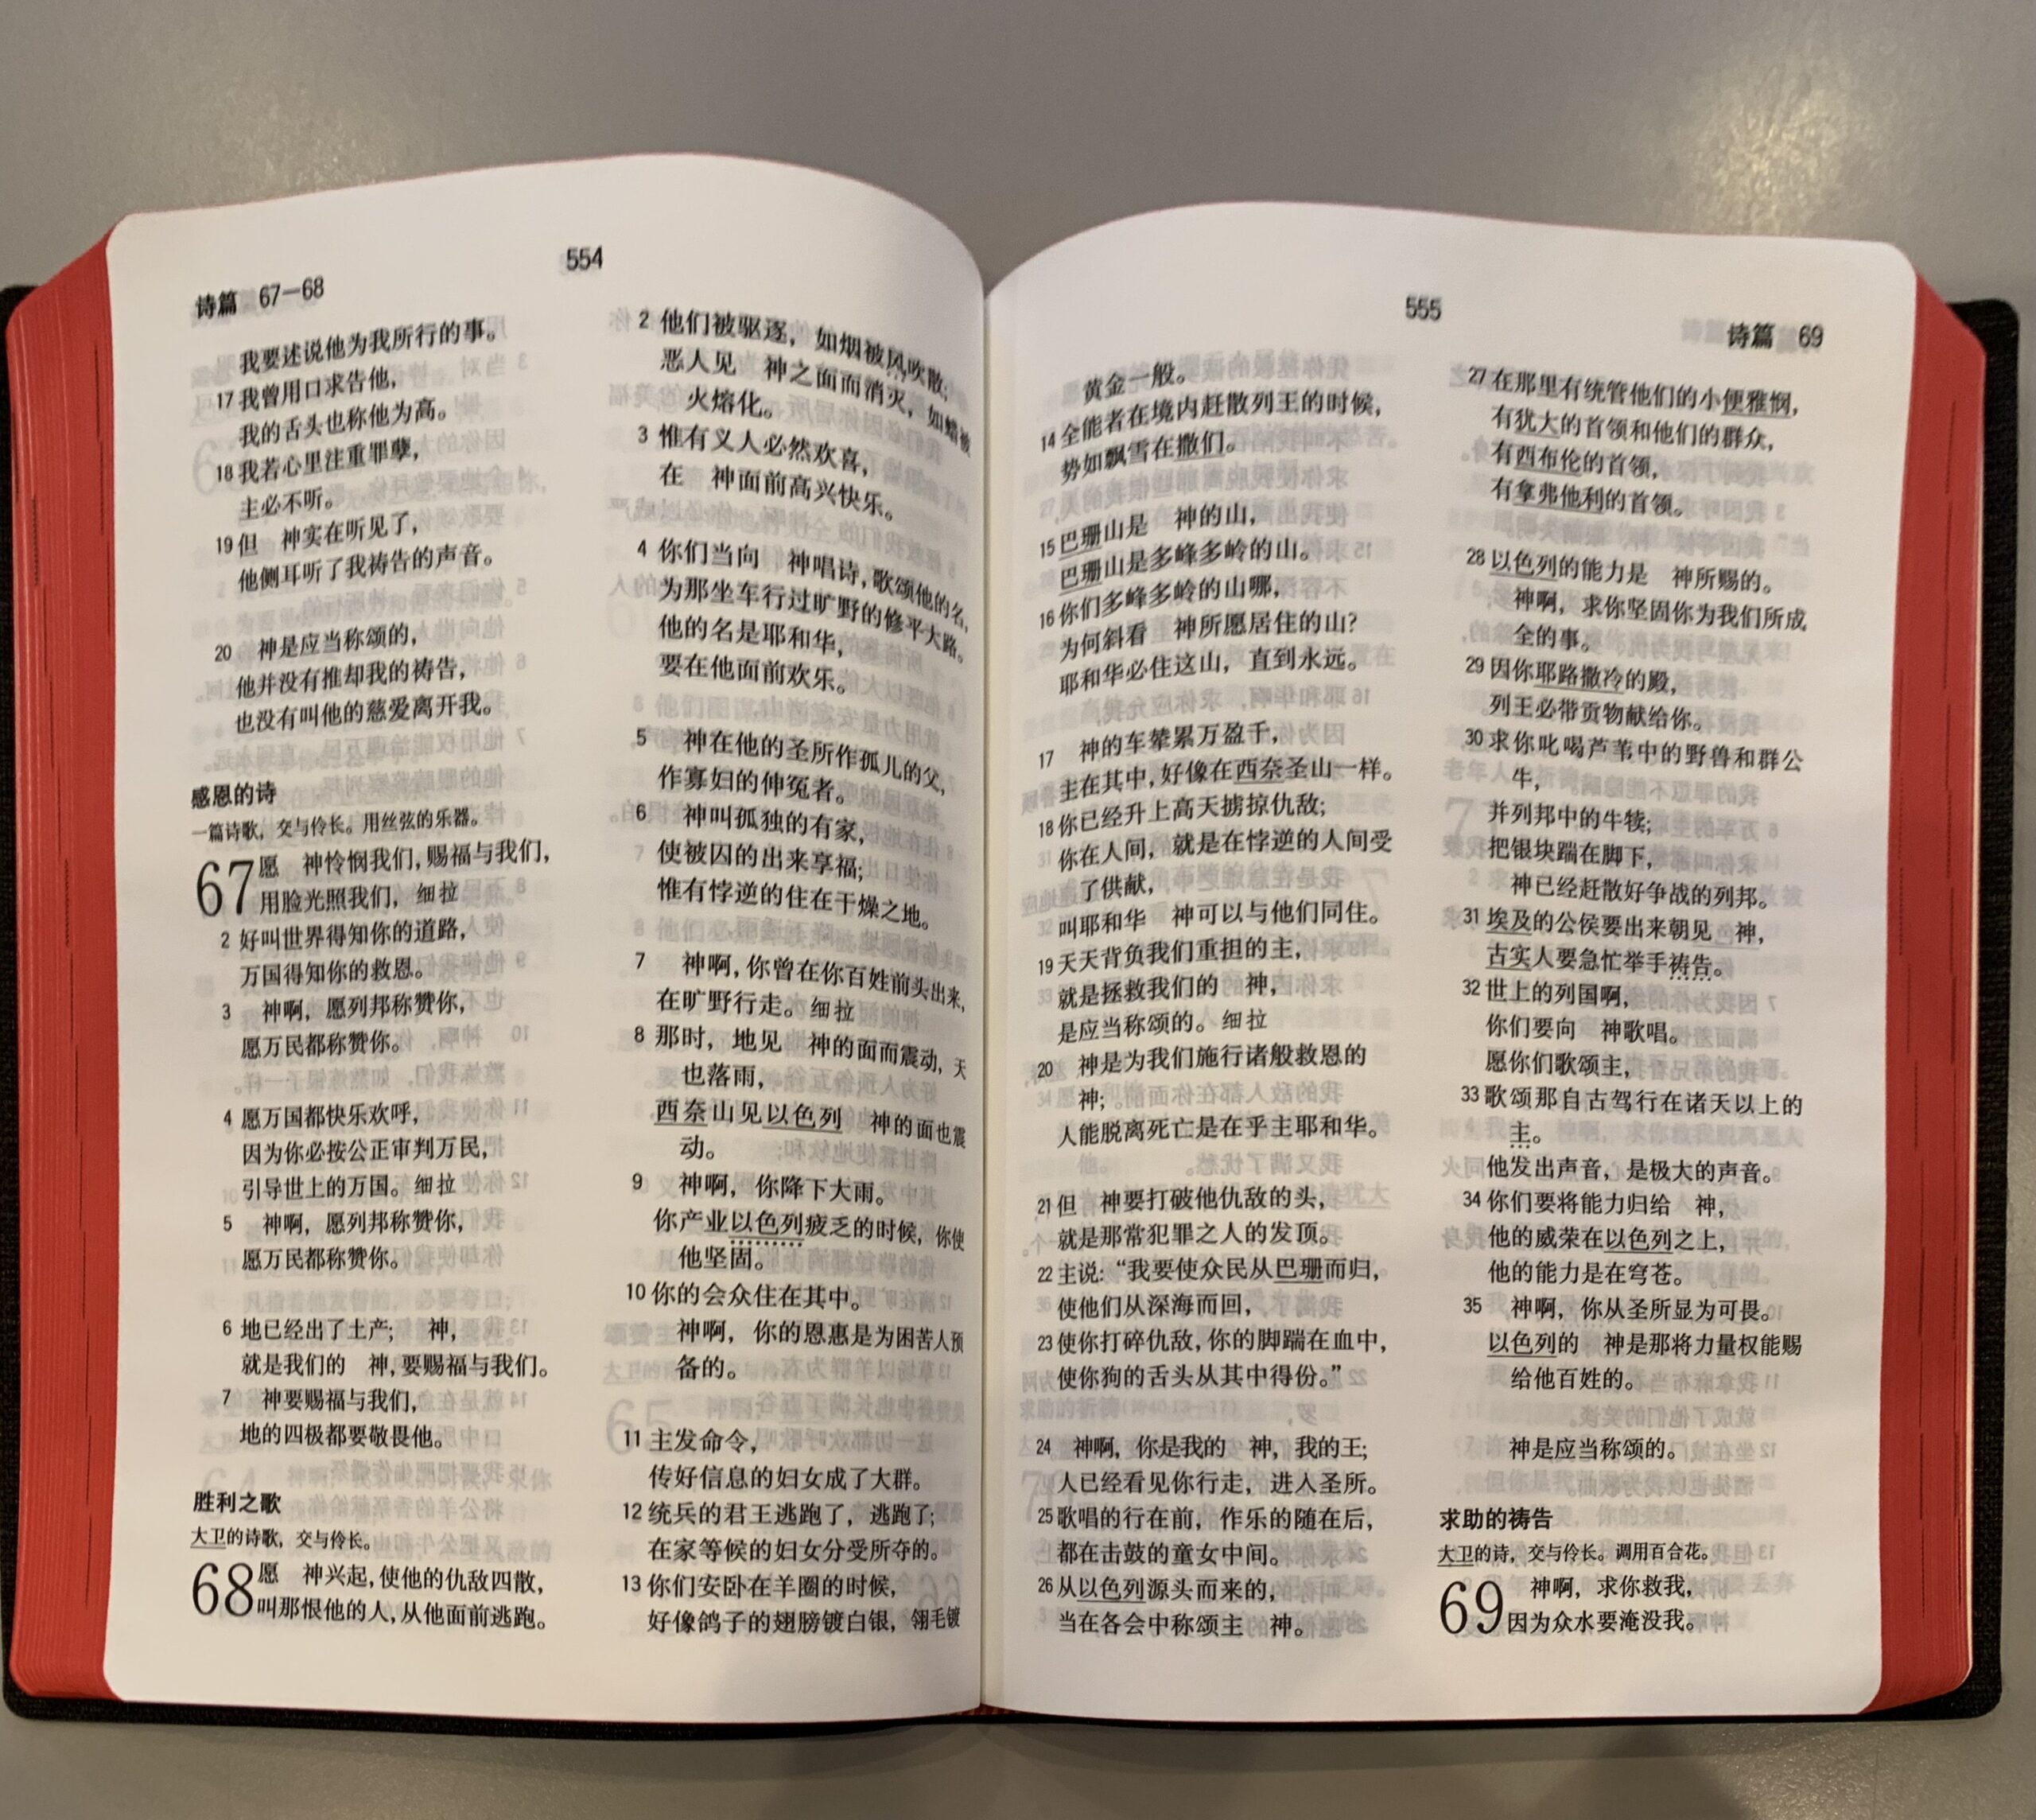 554
诗篇 67—68
我要述说他为我所行的事。
17 我曾用口求告他，
我的舌头也称他为高。
18 我若心里注重罪孽，
主必不听。
19 但 神实在听见了，
他侧耳听了我祷告的声音。
20 神是应当称颂的，
他并没有推却我的祷告，
也没有叫他的慈爱离开我。
感恩的诗
一篇诗歌，交与伶长。用丝弦的乐器。
67 愿 神怜悯我们，赐福与我们，
用脸光照我们，细拉
2 好叫世界得知你的道路，
万国得知你的救恩。
3 神啊，愿列邦称赞你，
愿万民都称赞你。
4 愿万国都快乐欢呼，
因为你必按公正审判万民，
引导世上的万国。细拉
5 神啊，愿列邦称赞你，
愿万民都称赞你。
6 地已经出了土产； 神，
就是我们的 神，要赐福与我们。
7 神要赐福与我们，
地的四极都要敬畏他。
胜利之歌
大卫的诗歌，交与伶长。
68 愿 神兴起，使他的仇敌四散，
叫那恨他的人，从他面前逃跑。
2 他们被驱逐，如烟被风吹散；
恶人见 神之面而消灭，如蜡被
火熔化。
3 惟有义人必然欢喜，
在 神面前高兴快乐。
4 你们当向 神唱诗，歌颂他的名，
为那坐车行过旷野的修平大路。
他的名是耶和华，
要在他面前欢乐。
5 神在他的圣所作孤儿的父，
作寡妇的伸冤者。
6 神叫孤独的有家，
使被囚的出来享福；
惟有悖逆的住在干燥之地。
7 神啊，你曾在你百姓前头出来，
在旷野行走。细拉
8 那时，地见 神的面而震动，天
也落雨，
西奈山见以色列 神的面也震
动。
9 神啊，你降下大雨。
你产业以色列疲乏的时候，你使
他坚固。
10 你的会众住在其中。
神啊，你的恩惠是为困苦人预
备的。
11 主发命令，
传好信息的妇女成了大群。
12 统兵的君王逃跑了，逃跑了；
在家等候的妇女分受所夺的。
13 你们安卧在羊圈的时候，
好像鸽子的翅膀镀白银，翎毛镀
555
诗篇 69
黄金一般。
14 全能者在境内赶散列王的时候，
势如飘雪在撒们。
15 巴珊山是 神的山，
巴珊山是多峰多岭的山。
16 你们多峰多岭的山哪，
为何斜看 神所愿居住的山？
耶和华必住这山，直到永远。
17 神的车辇累万盈千，
主在其中，好像在西奈圣山一样。
18 你已经升上高天掳掠仇敌；
你在人间，就是在悖逆的人间受
了供献，
叫耶和华 神可以与他们同住。
19 天天背负我们重担的主，
就是拯救我们的 神，
是应当称颂的。细拉
20 神是为我们施行诸般救恩的
神；
人能脱离死亡是在乎主耶和华。
21 但 神要打破他仇敌的头，
就是那常犯罪之人的发顶。
22 主说：“我要使众民从巴珊而归，
使他们从深海而回，
23 使你打碎仇敌，你的脚踹在血中，
使你狗的舌头从其中得份。”
24 神啊，你是我的 神，我的王；
人已经看见你行走，进入圣所。
25 歌唱的行在前，作乐的随在后，
都在击鼓的童女中间。
26 从以色列源头而来的，
当在各会中称颂主 神。
27 在那里有统管他们的小便雅悯，
有犹大的首领和他们的群众，
有西布伦的首领，
有拿弗他利的首领。
28 以色列的能力是 神所赐的。
神啊，求你坚固你为我们所成
全的事。
29 因你耶路撒冷的殿，
列王必带贡物献给你。
30 求你叱喝芦苇中的野兽和群公
牛，
并列邦中的牛犊；
把银块踹在脚下，
神已经赶散好争战的列邦。
31 埃及的公侯要出来朝见 神，
古实人要急忙举手祷告。
32 世上的列国啊，
你们要向 神歌唱。
愿你们歌颂主，
33 歌颂那自古驾行在诸天以上的
主。
他发出声音，是极大的声音。
34 你们要将能力归给 神，
他的威荣在以色列之上，
他的能力是在穹苍。
35 神啊，你从圣所显为可畏。
以色列的 神是那将力量权能赐
给他百姓的。
神是应当称颂的。
求助的祷告
大卫的诗，交与伶长。调用百合花。
69 神啊，求你救我，
因为众水要淹没我。